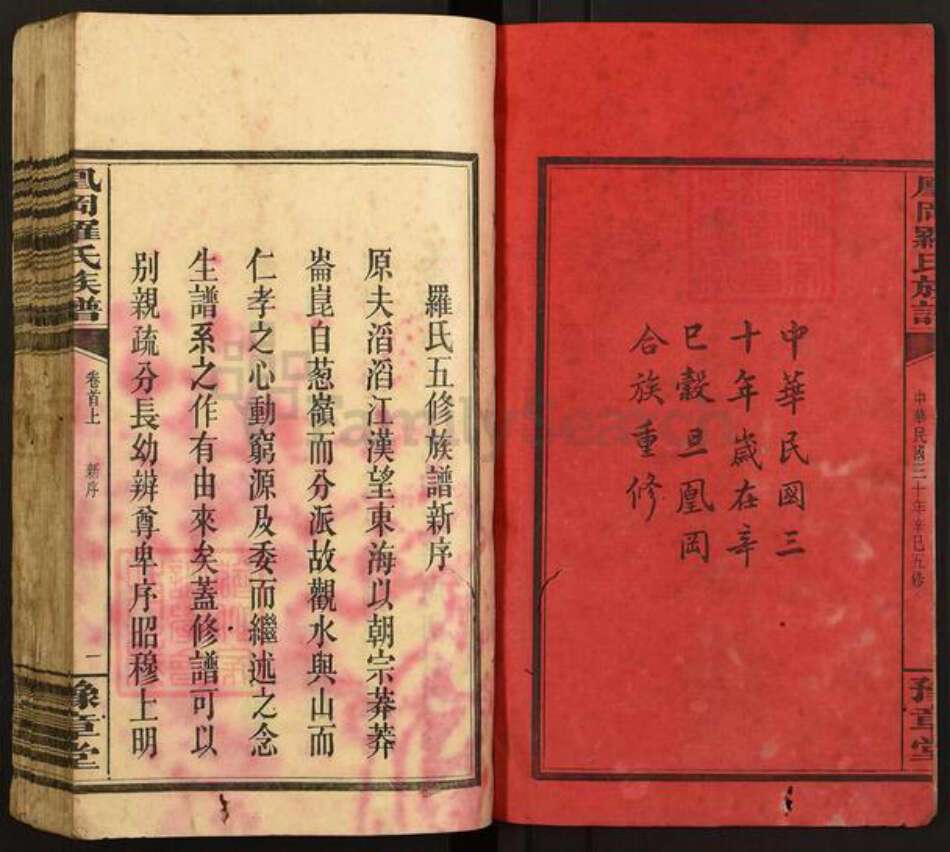 鳳岡羅氏族譜
中華民國三十年辛巳五修
豫章堂
中華民國三
十年歲在辛
巳穀旦鳳岡
合族重修
羅氏五修族譜新序
原夫滔滔江漢望東海以朝宗莽莽
崙崑自葱嶺而分派故觀水與山而
仁孝之心動窮源及委而繼述之念
生譜系之作有由來矣蓋修譜可以
別親疏分長幼辨尊卑序昭穆上明
鳳岡羅氏族譜
卷首上
新序
一
豫章堂
FamilySearch